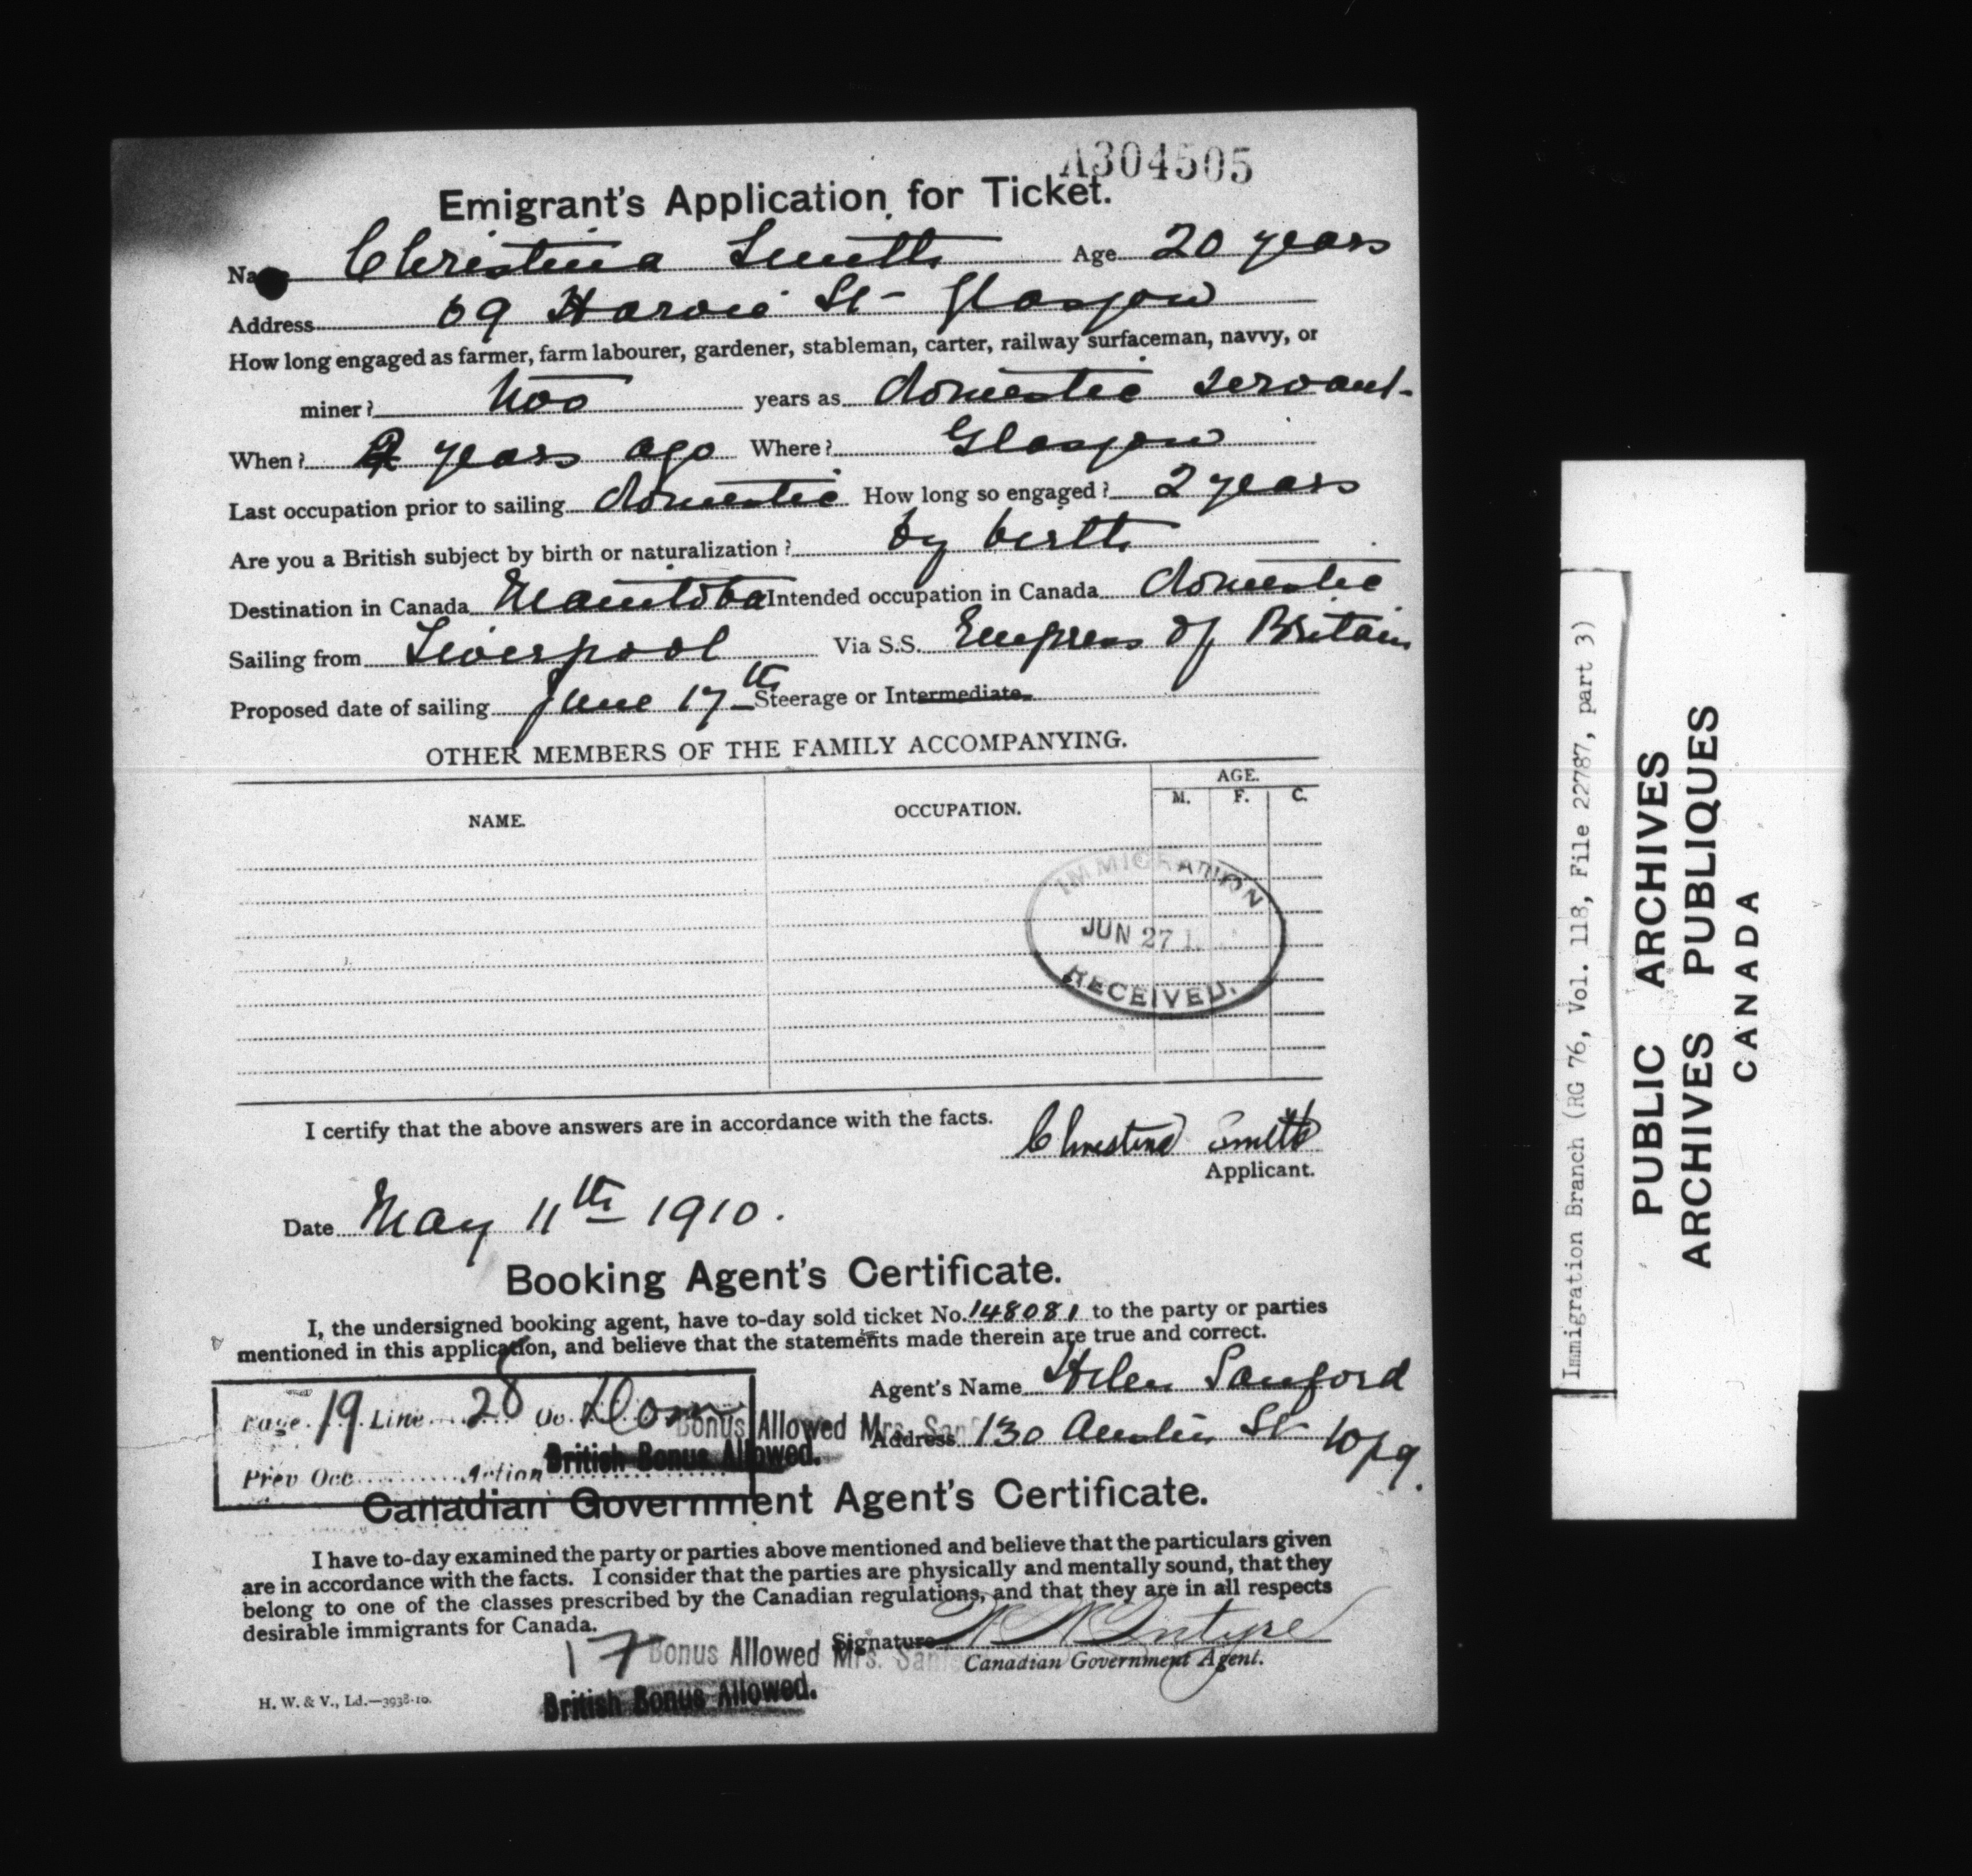 A304505
Emigrant's Application for Ticket.
Name Christina Smith Age 20 years
Address 69 Harvie St - Glasgow
How long engaged as farmer, farm labourer, gardener, stableman, carter, railway surfaceman, navvy, or
miner? two years as domestic servant
When? 2 years ago Where? Glasgow
Last occupation prior to sailing domestic How long so engaged? 2 years
Are you a British subject by birth or naturalization? by birth
Destination in Canada Manitoba Intended occupation in Canada domestic
Sailing from Liverpool Via S.S. Empress of Britain
Proposed date of sailing June 17th Steerage or Intermediate
OTHER MEMBERS OF THE FAMILY ACCOMPANYING.
NAME. OCCUPATION. AGE.
M. F. C.
IMMIGRATION
JUN 27 1
RECEIVED.
I certify that the above answers are in accordance with the facts. Christina Smith
Applicant.
Date May 11th 1910.
Booking Agent's Certificate.
I, the undersigned booking agent, have to-day sold ticket No. 148081 to the party or parties
mentioned in this application, and believe that the statements made therein are true and correct.
Agent's Name Helen Sanford
Page 19 Line 28 Oc. Dom
Bonus Allowed Mrs. Sanf
Address 130 Austin St Wpg.
British Bonus Allowed.
Prev Occ Action
Canadian Government Agent's Certificate.
I have to-day examined the party or parties above mentioned and believe that the particulars given
are in accordance with the facts. I consider that the parties are physically and mentally sound, that they
belong to one of the classes prescribed by the Canadian regulations, and that they are in all respects
desirable immigrants for Canada.
17 Bonus Allowed Mrs. Sanf
Signature McIntyre
Canadian Government Agent.
British Bonus Allowed.
H. W. & V., Ld.—3938-10.
Immigration Branch (RG 76, Vol. 118, File 22787, part 3)
PUBLIC ARCHIVES
ARCHIVES PUBLIQUES
CANADA